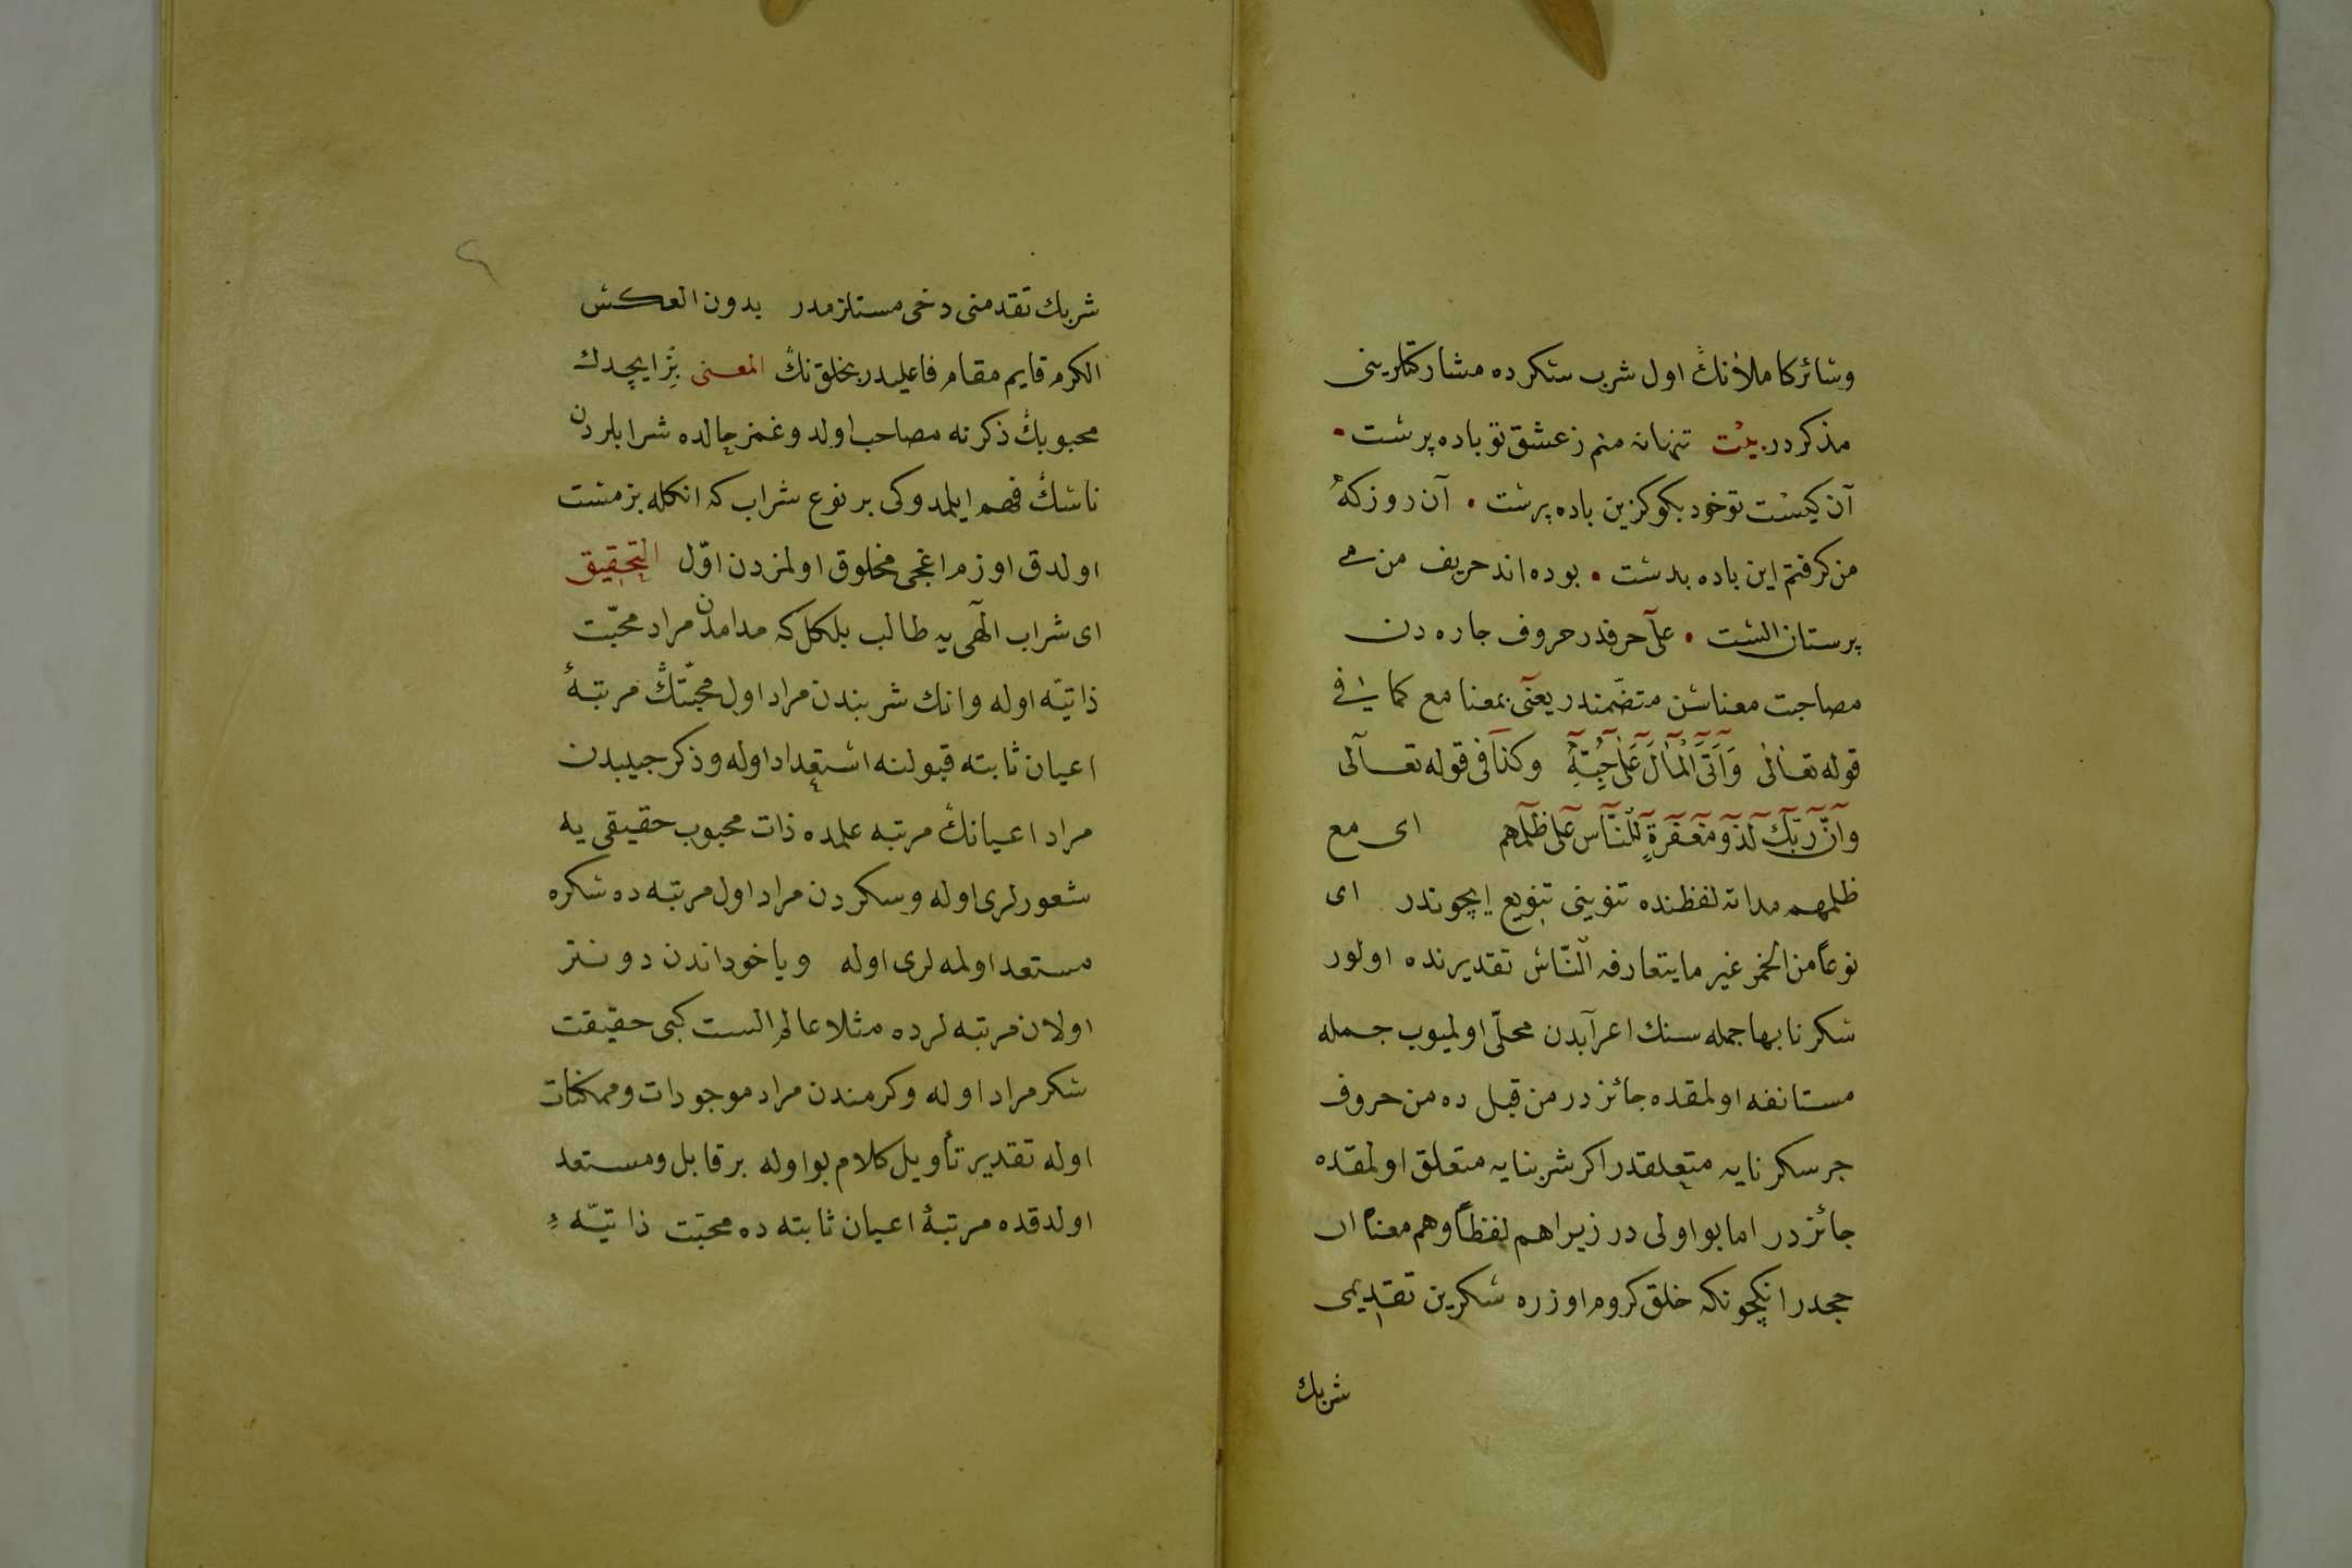 وسائر كاملانڭ اول شرب سكرده مشاركتلريني
مذكردر بيت تنها نه منم ز عشق تو باده پرست
آن كيست تو خود بكو كزين باده پرست آن روز كه
من كرفتم اين باده بدست بوده اند حريف من مى
پرستان الست على حرفدر حروف جاره دن
مصاحبت معناسن متضمندر يعنى بمعنا مع كما في
قوله تعالى وَآتَى الْمَالَ عَلَى حُبِّهِ وكذا فى قوله تعالى
وان ربك لذو مغفرة للناس على ظلمهم اى مع
ظلمهم مدامة لفظنده تنوينى تنويع ايچوندر اى
نوعاً من الخمر غير ما يتعارفه النّاس تقديرنده اولور
سكرنا بها جمله سنك اعرابدن محلّى اولميوب جمله
مستانفه اولمقده جائزدر من قبل ده من حروف
جر سكرنايه متعلقدر اكر شربنايه متعلق اولمقده
جائزدر اما بو اولى در زيرا هم لفظاً وهم معناً ار
جحدر انكچونكه خلق كروم اوزره سكرين تقديمى
شربك
شربك تقدمنى دخى مستلزمدر بدون العكس
الكرم قايم مقام فاعليدر يخلق نڭ المعنى بز ايچدك
محبوبڭ ذكرنه مصاحب اولدوغمز حالده شرابلردن
ناسڭ فهم ايلمدوكى بر نوع شراب كه انكله بز مست
اولدق اوزم اغجى مخلوق اولمزدن اوّل التحقيق
اى شراب الٓهى يه طالب بلكل كه مدامدن مراد محبّت
ذاتيّه اوله وانك شربندن مراد اول محبّتڭ مرتبهٔ
اعيان ثابته قبولنه استعداد اوله وذكر حبيبدن
مراد اعيانڭ مرتبه علمده ذات محبوب حقيقى يه
شعورلرى اوله وسكردن مراد اول مرتبه ده سكره
مستعد اولمه لرى اوله وياخود اندن دونتر
اولان مرتبه لرده مثلا عالم الست كبى حقيقت
سكر مراد اوله وكرمندن مراد موجودات وممكنات
اوله تقدير تأويل كلام بو اوله بر قابل ومستعد
اولدقده مرتبهٔ اعيان ثابته ده محبّت ذاتيّه ءِ